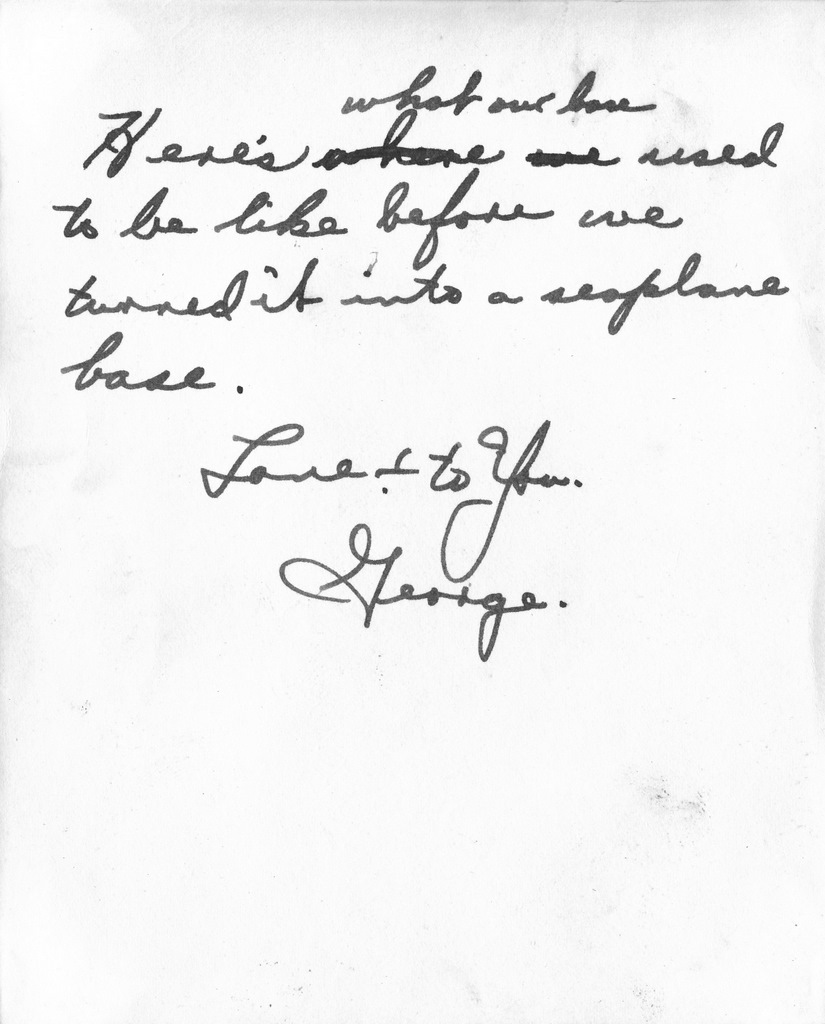 what our base
Here's where we used
to be like before we
turned it into a seaplane
base.
Love + to You.
George.